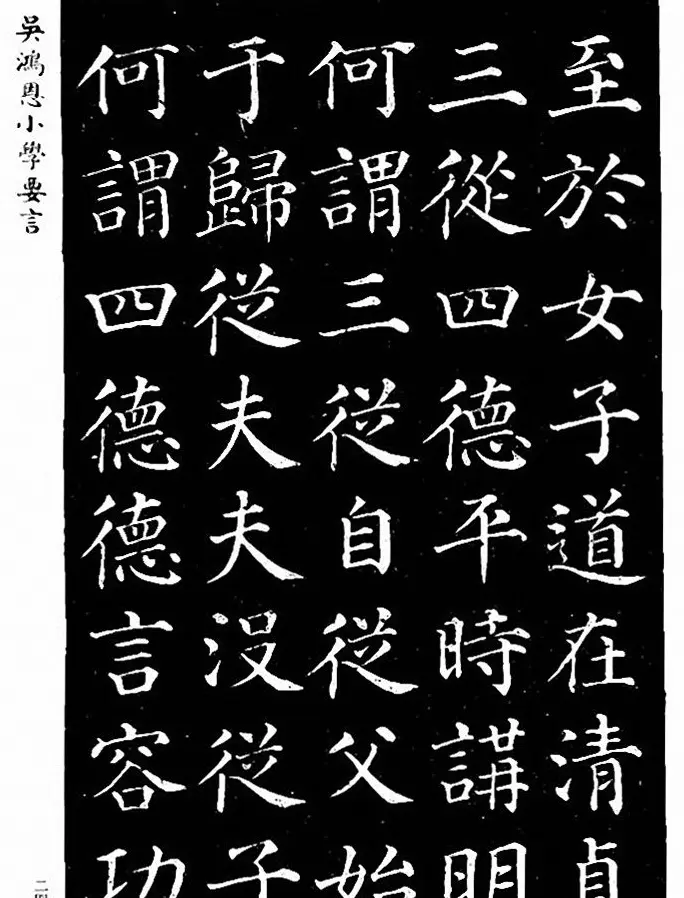 至於女子道在清貞
三從四德平時講明
何謂三從自從父始
于歸從夫夫沒從子
何謂四德德言容功
吳鴻恩小學要言